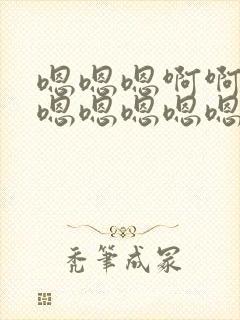 嗯嗯嗯啊啊
嗯嗯嗯嗯嗯
禿筆成冢